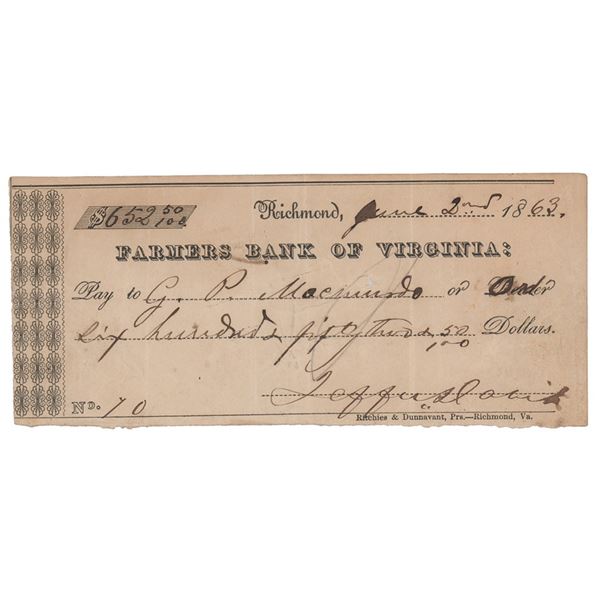 $652 50/100 Richmond, June 2nd 1863.
FARMERS BANK OF VIRGINIA:
Pay to G. P. Macmurdo or Order
Six hundred & fifty two & 50/100 Dollars.
Jeffn. Davis
No. 70
Ritchies & Dunnavant, Prs.—Richmond, Va.